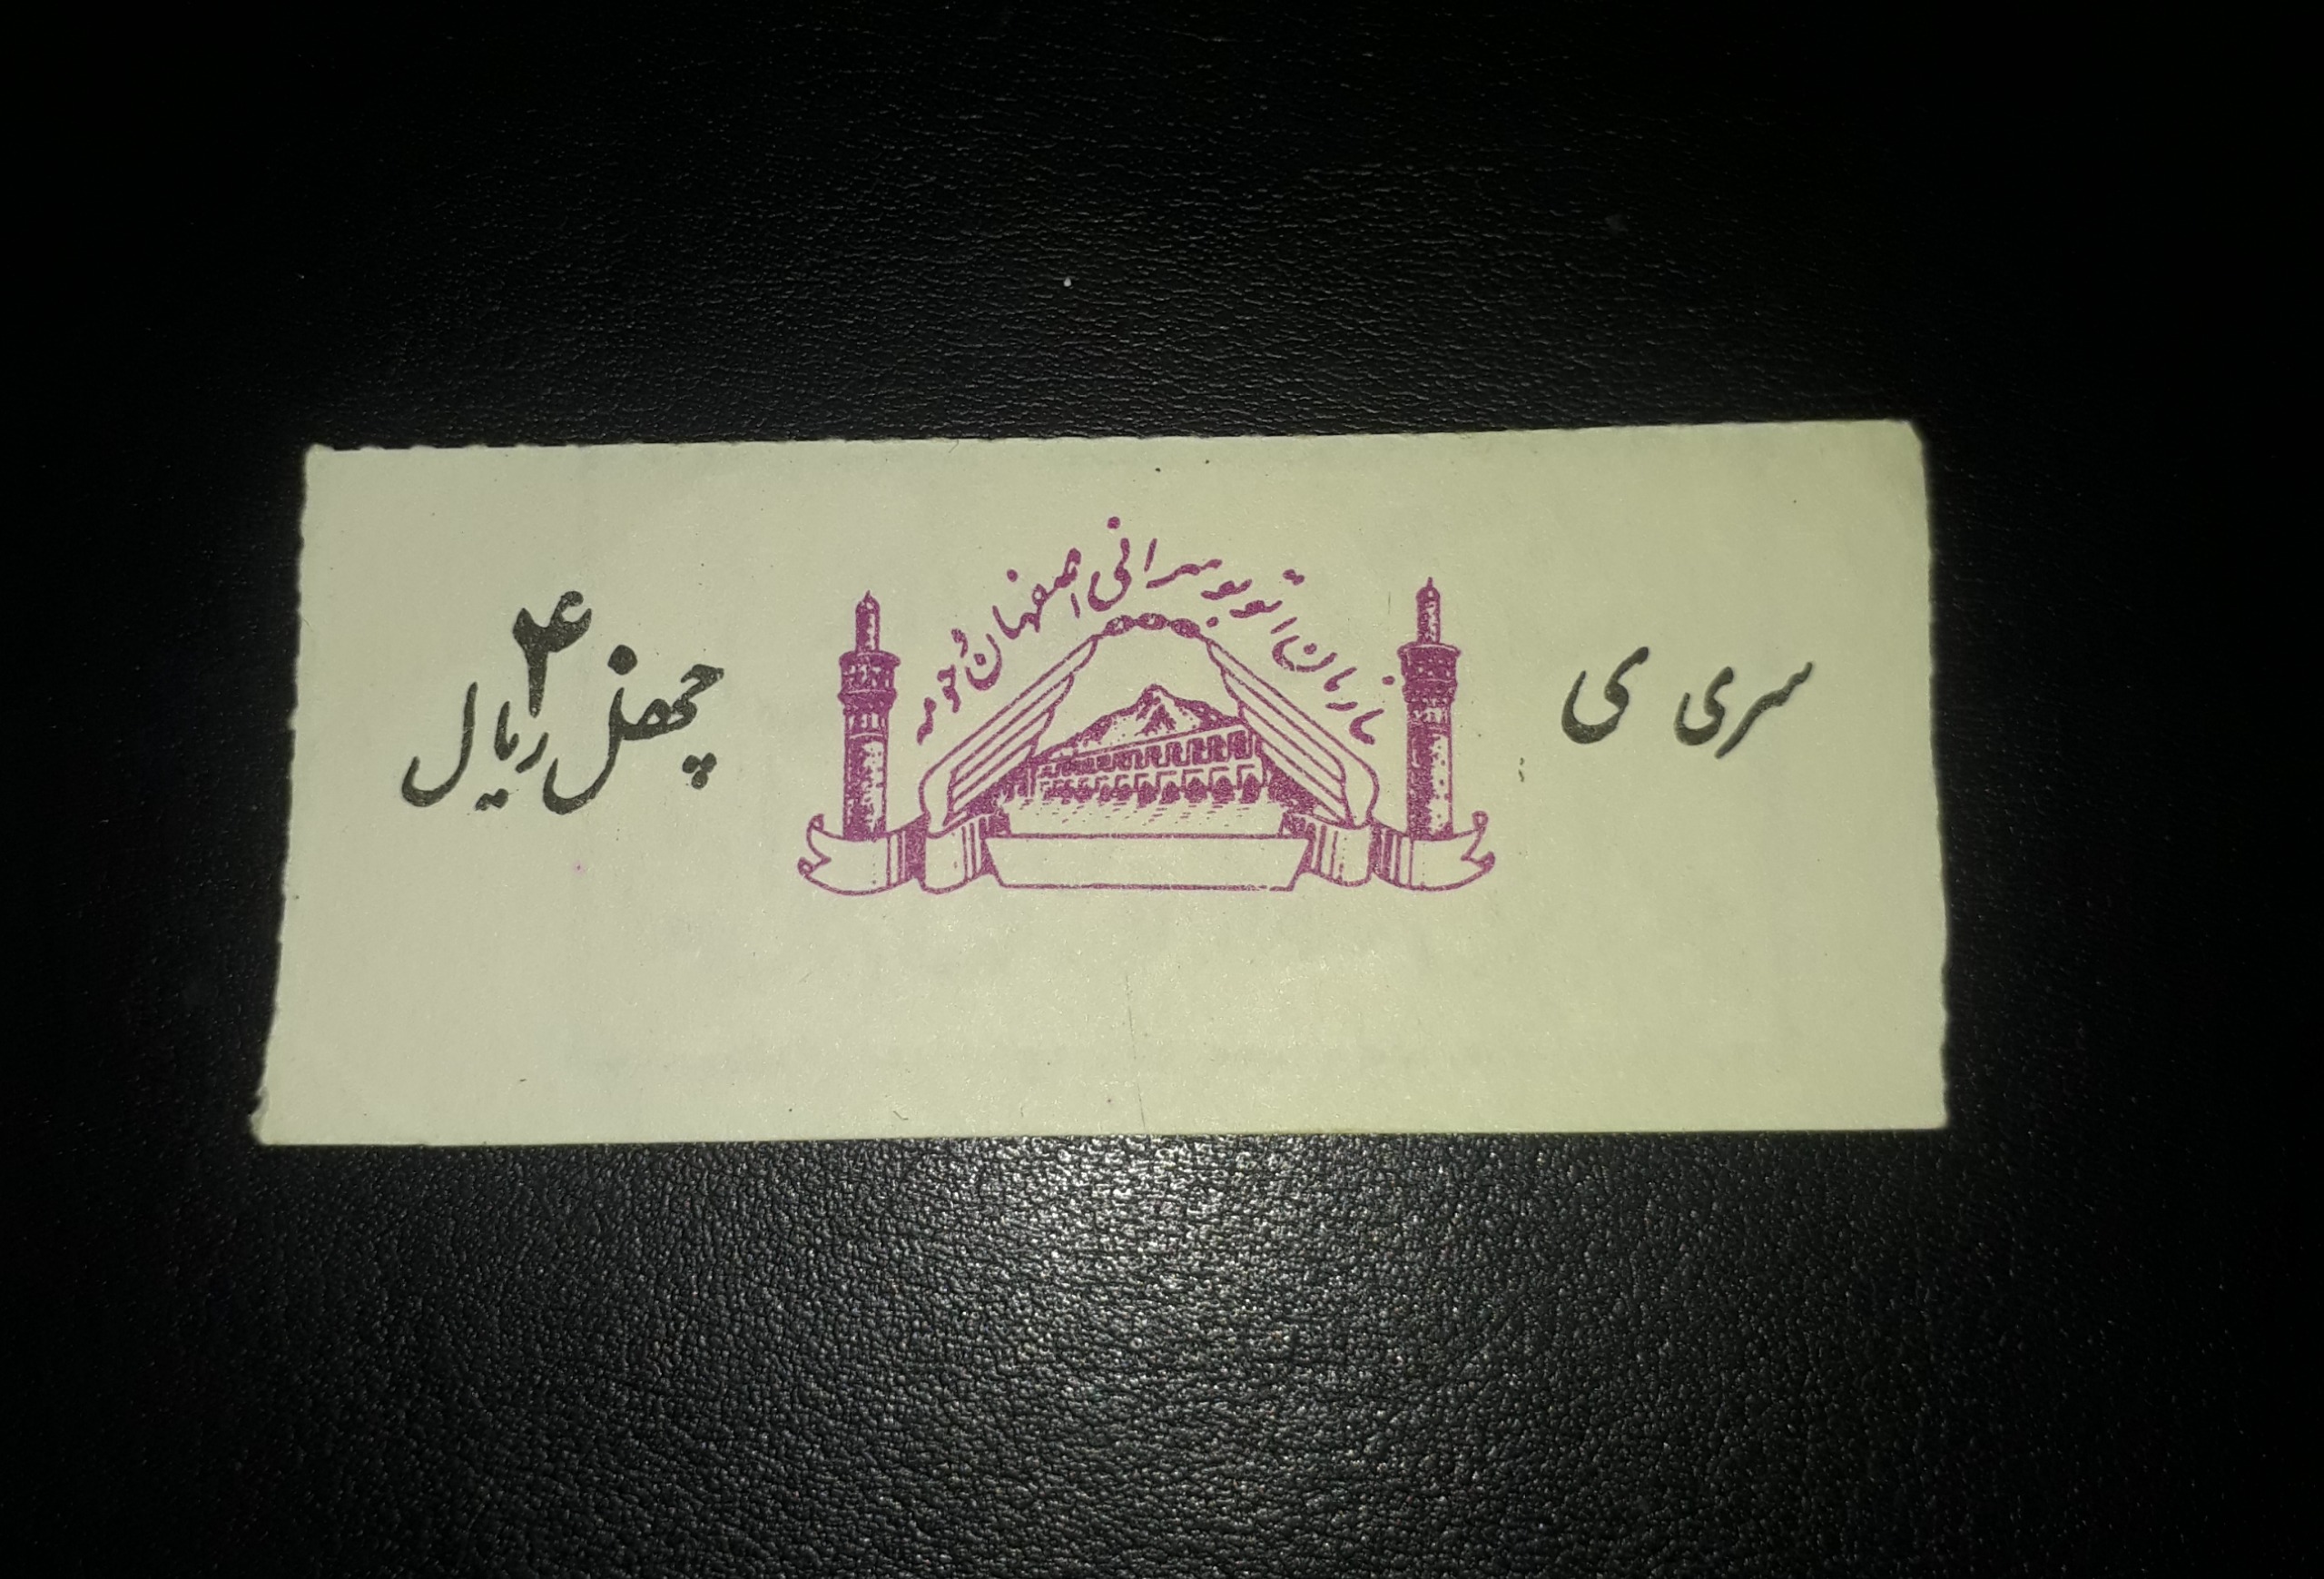 سری ی
سازمان اتوبوسرانی اصفهان و حومه
۴
چهل ریال